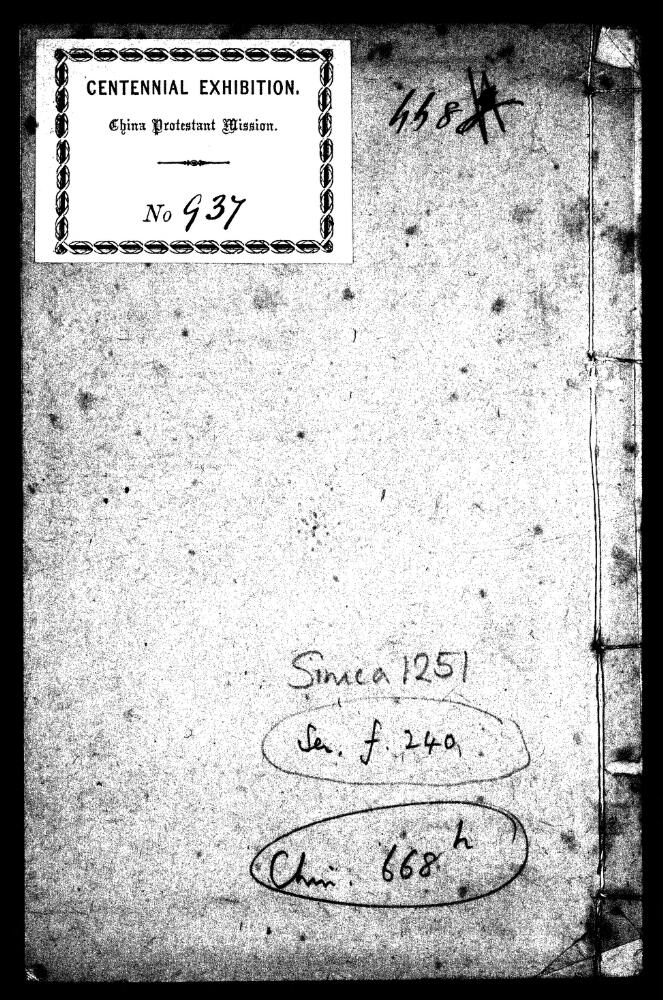 CENTENNIAL EXHIBITION.
China Protestant Mission.
No 937
Sinica 1251
Ser. f. 240
Chin. 668 h